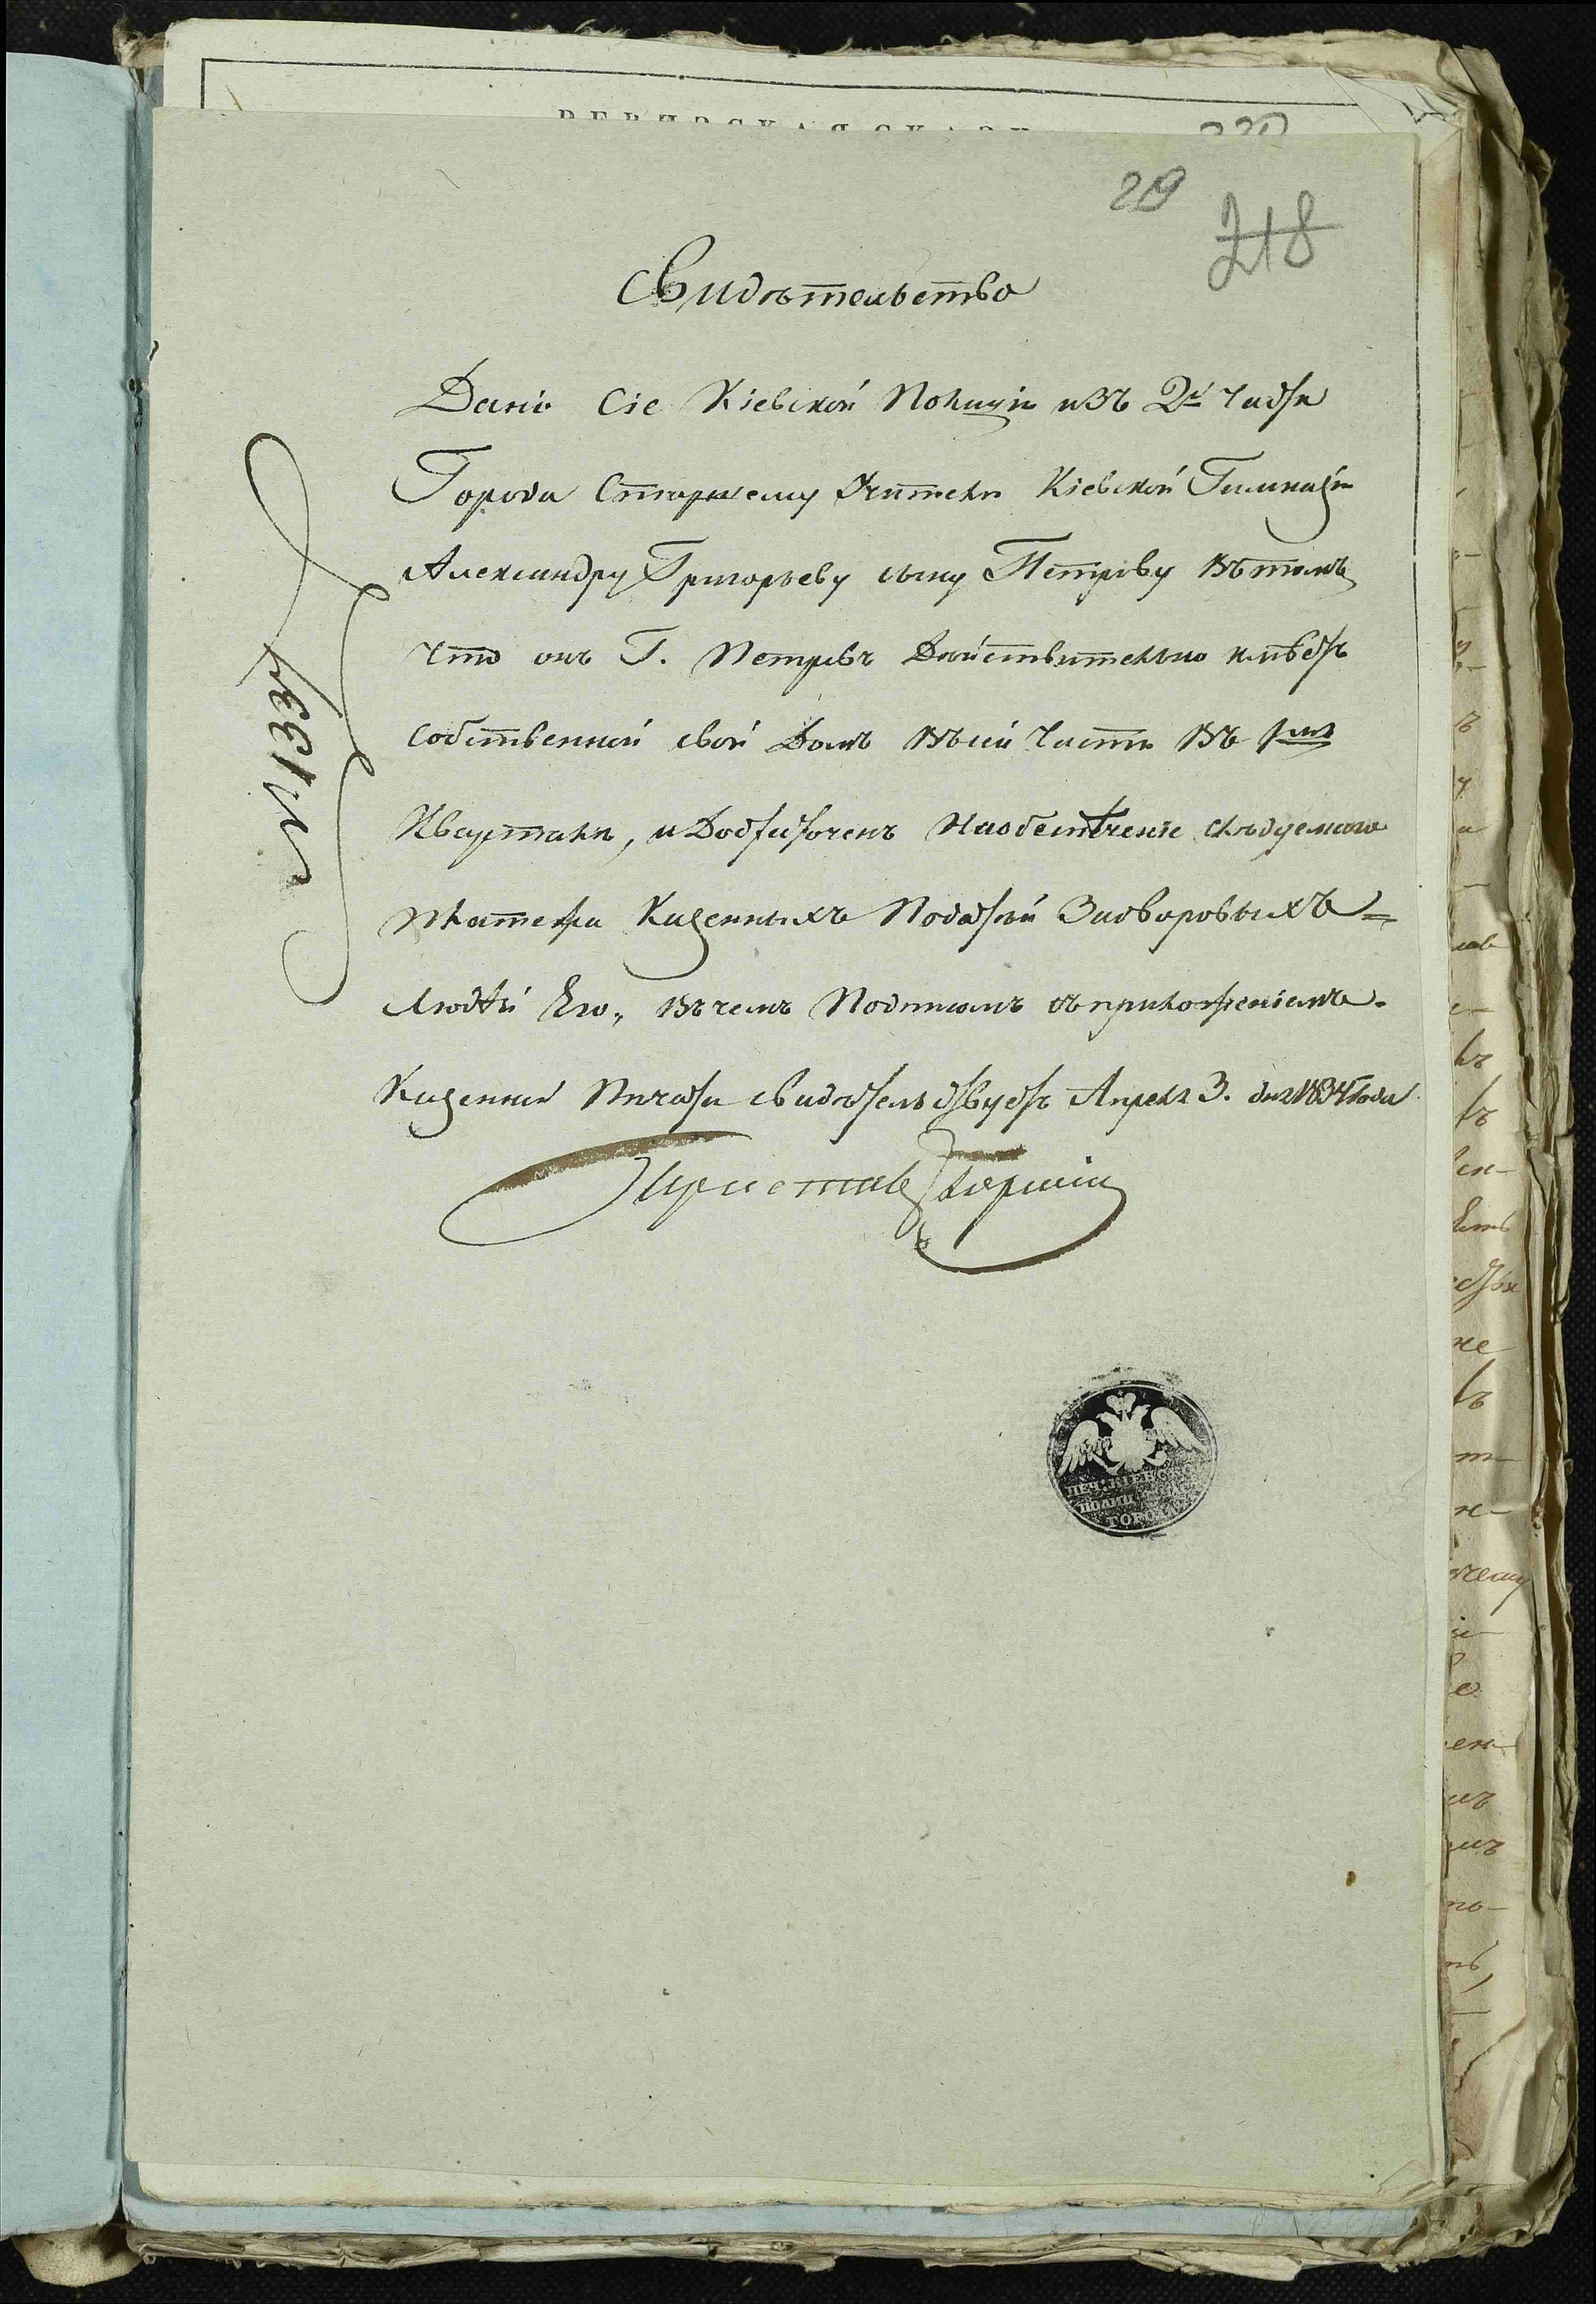 РЕВИЗСКАЯ СКАЗК
220
29
218
Свидѣтельство
Дано Сіе Кіевской Полиціи изъ 2й Части
Города Старшему Учителю Кіевской Гимназіи
Александру Григорьеву сыну Петрову Въ томъ
Что онъ Г. Петровъ Дѣйствительно имѣетъ
собственной свой Домъ Въ сей Части Въ 1мъ
Кварталѣ, и Достаточенъ На обезпеченіе следуемаго
платежа Казенныхъ Податей За дворовыхъ
людей Его, Въ чемъ Подписомъ съ приложеніемъ
Казенной Печати свидѣтельствуетъ Апреля 3. дня 1834 года
Приставъ
№ 1337
ПЕЧ. КІЕВСКОЙ
ПОЛИЦ
ГОРОДА